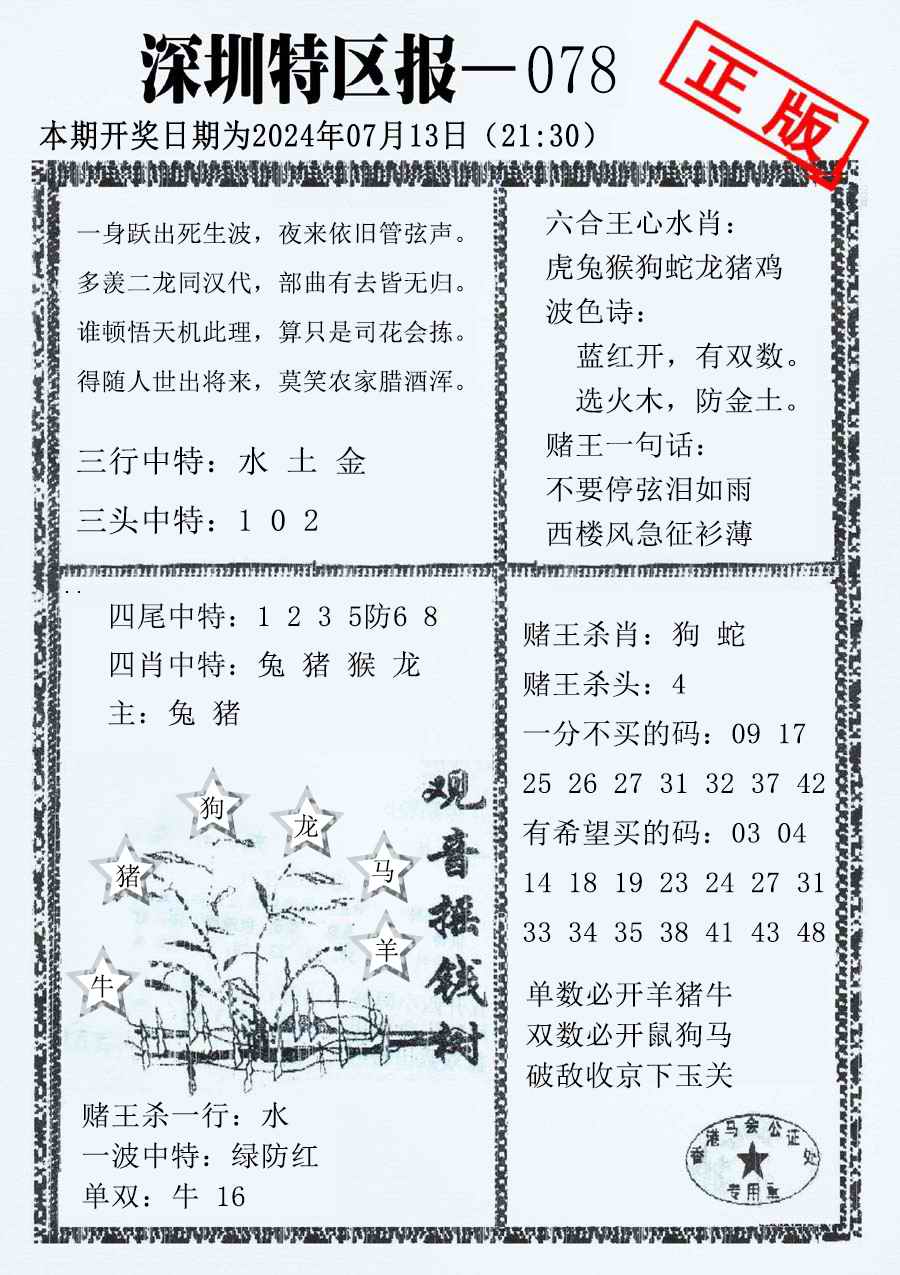 深圳特区报—078
正版
本期开奖日期为2024年07月13日（21:30）
一身跃出死生波，夜来依旧管弦声。
多羡二龙同汉代，部曲有去皆无归。
谁顿悟天机此理，算只是司花会拣。
得随人世出将来，莫笑农家腊酒浑。
三行中特：水 土 金
三头中特：1 0 2
六合王心水肖：
虎兔猴狗蛇龙猪鸡
波色诗：
蓝红开，有双数。
选火木，防金土。
赌王一句话：
不要停弦泪如雨
西楼风急征衫薄
四尾中特：1 2 3 5防6 8
四肖中特：兔 猪 猴 龙
主：兔 猪
狗
龙
猪
马
羊
牛
观音摇钱树
赌王杀一行：水
一波中特：绿防红
单双：牛 16
赌王杀肖：狗 蛇
赌王杀头：4
一分不买的码：09 17
25 26 27 31 32 37 42
有希望买的码：03 04
14 18 19 23 24 27 31
33 34 35 38 41 43 48
单数必开羊猪牛
双数必开鼠狗马
破敌收京下玉关
香港马会公证处
专用章